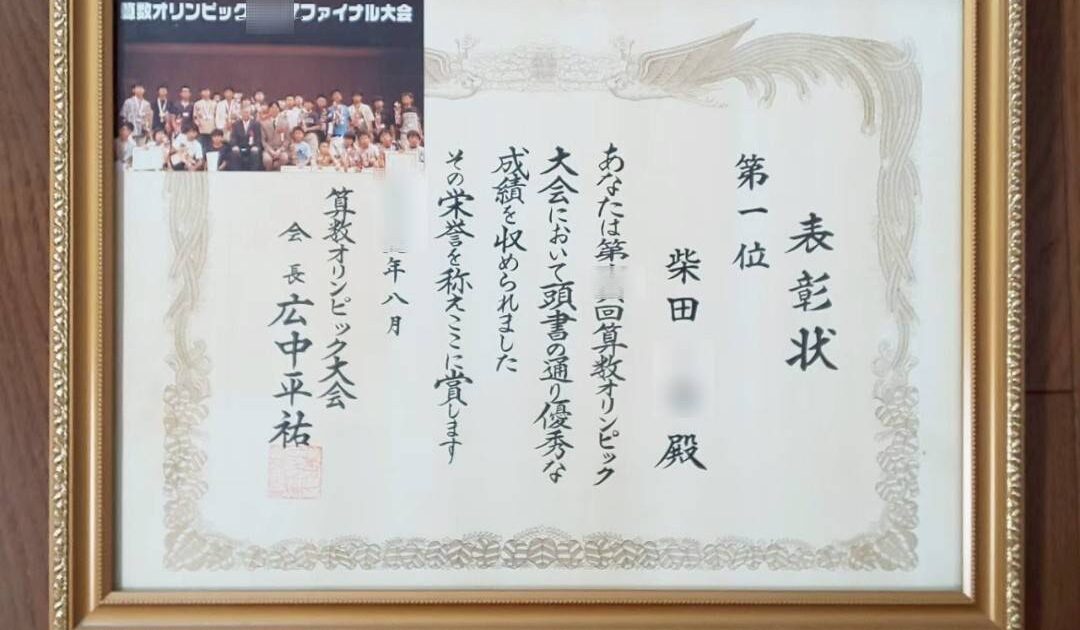 算数オリンピック ファイナル大会
表彰状
第一位
柴田 殿
あなたは第 回算数オリンピック
大会において頭書の通り優秀な
成績を収められました
その栄誉を称えここに賞します
年八月
算数オリンピック大会
会長 広中平祐